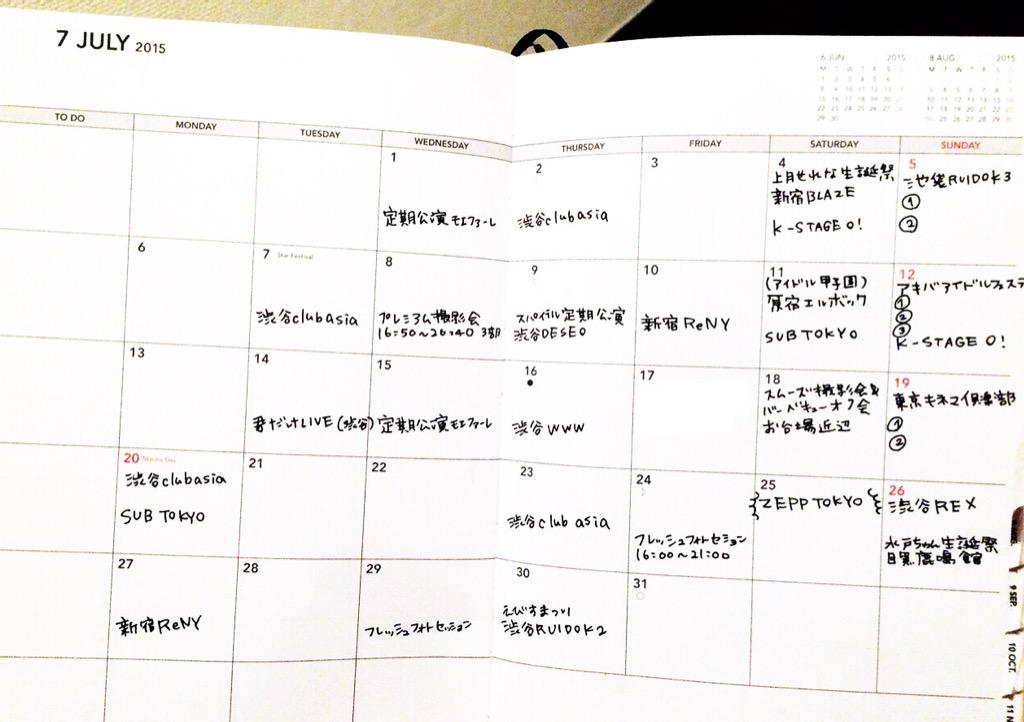 7 JULY 2015
6 JUN 2015
M T W T F S S
1 2 3 4 5 6 7
8 9 10 11 12 13 14
15 16 17 18 19 20 21
22 23 24 25 26 27 28
29 30
8 AUG 2015
M T W T F S S
1 2
3 4 5 6 7 8 9
10 11 12 13 14 15 16
17 18 19 20 21 22 23
TO DO MONDAY TUESDAY WEDNESDAY THURSDAY FRIDAY SATURDAY SUNDAY
1
定期公演 モエファーレ
2
渋谷clubasia
3
4
上月せれな生誕祭
新宿BLAZE
K-STAGE O!
5
池袋RUIDOK3
①
②
6
7 Star Festival
渋谷clubasia
8
プレミアム撮影会
16:50〜20:40 3部
9
スパイラル定期公演
渋谷DESEO
10
新宿ReNY
11
(アイドル甲子園)
原宿エルボック
SUB TOKYO
12
アキバアイドルフェステ
①
②
③
K-STAGE O!
13
14
君だけLIVE (渋谷)
15
定期公演モエファーレ
16
渋谷WWW
17
18
スムーズ撮影会&
バーベキューオフ会
お台場近辺
19
東京キネマ倶楽部
①
②
20 Marine Day
渋谷clubasia
SUB TOKYO
21
22
23
渋谷club asia
24
フレッシュフォトセション
16:00〜21:00
25
ZEPP TOKYO
26
渋谷REX
水戸ちゃん生誕祭
目黒鹿鳴館
27
新宿ReNY
28
29
フレッシュフォトセッション
30
えびすまつり
渋谷RUIDOK2
31
9 SEP.
10 OCT.
11 N